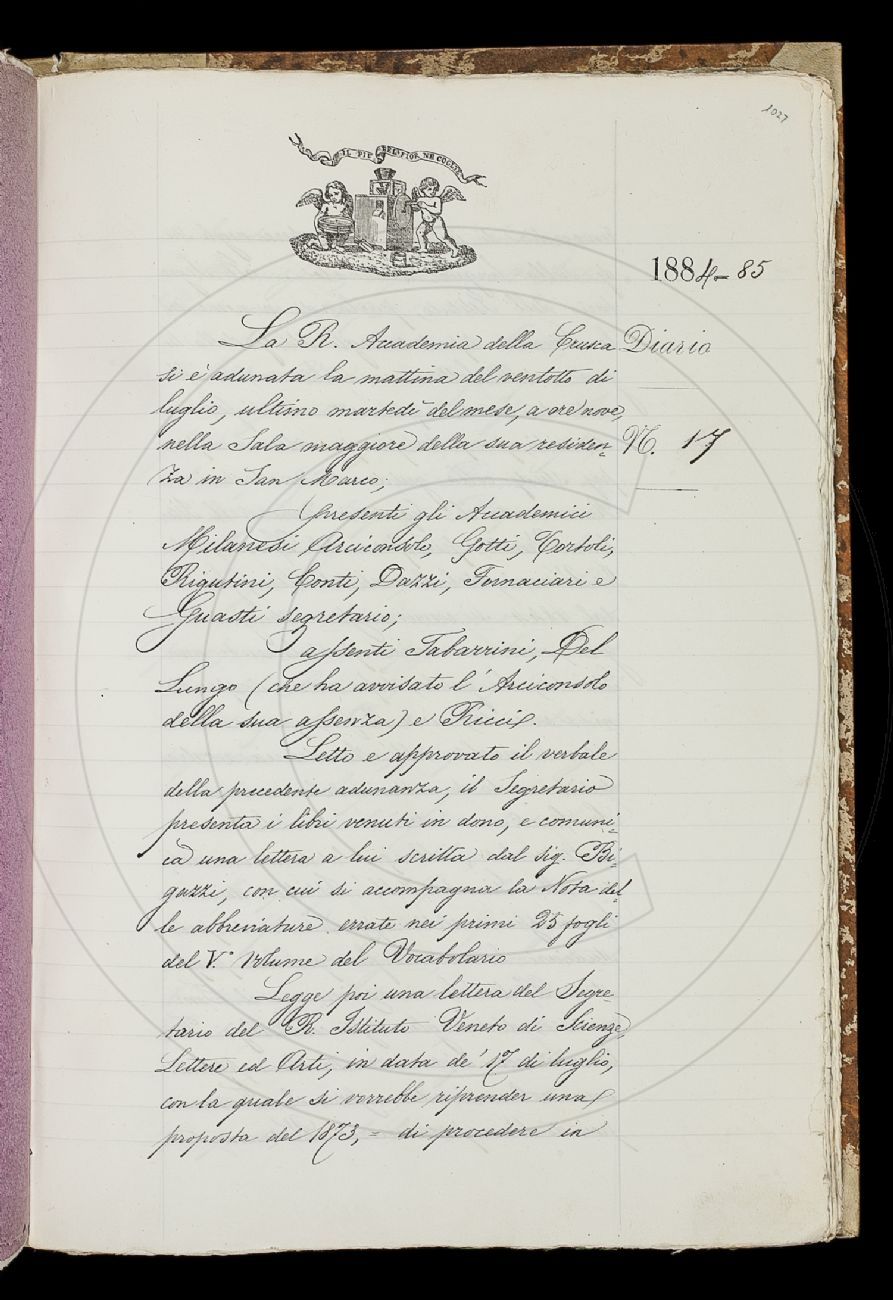 1027
IL PIÙ BEL FIOR NE COGLIE
1884-85
La R. Accademia della Crusca
Diario
si è adunata la mattina del ventotto di
luglio, ultimo martedì del mese, a ore nove,
nella Sala maggiore della sua residen=
N. 17
za in San Marco;
presenti gli Accademici
Milanesi Arciconsolo, Gotti, Tortoli,
Rigutini, Conti, Dazzi, Fornaciari e
Guasti segretario;
assenti Tabarrini, Del
Lungo (che ha avvisato l'Arciconsolo
della sua assenza) e Ricci.
Letto e approvato il verbale
della precedente adunanza, il Segretario
presenta i libri venuti in dono, e comuni=
ca una lettera a lui scritta dal sig. Bi=
guzzi, con cui si accompagna la Nota del=
le abbreviature errate nei primi 25 fogli
del V.° volume del Vocabolario
Legge poi una lettera del Segre=
tario del R. Istituto Veneto di Scienze,
Lettere ed Arti, in data de' 17 di luglio,
con la quale si vorrebbe riprender una
proposta del 1873, = di procedere in